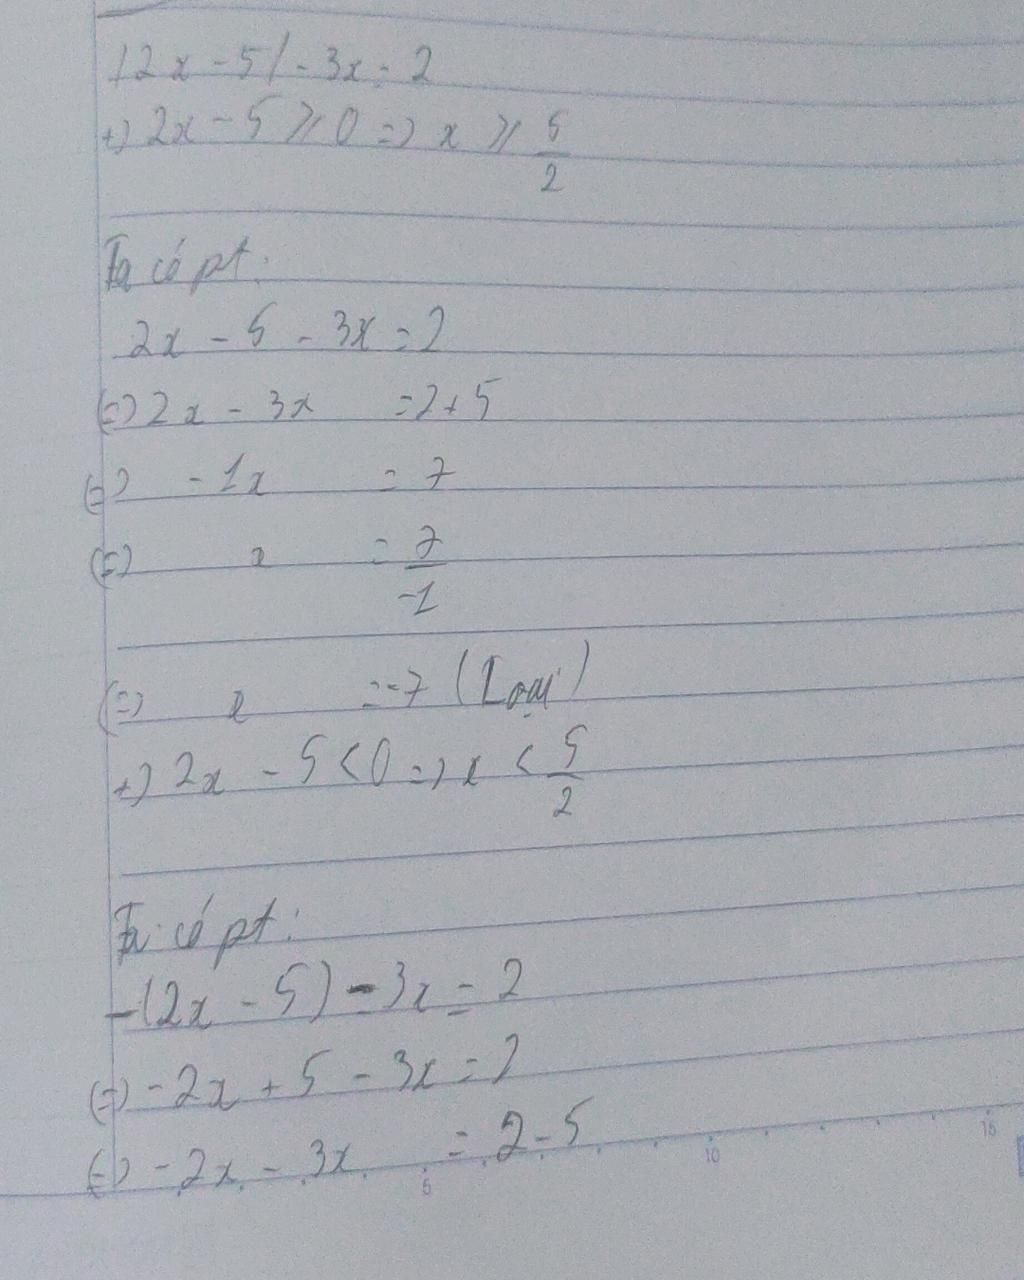 |2x - 5| - 3x = 2
+) 2x - 5 ⩾ 0 => x ⩾ 5/2
Ta có pt:
2x - 5 - 3x = 2
(=) 2x - 3x = 2 + 5
(=) - 1x = 7
(=) x = 7/-1
(=) x = -7 (Loại)
+) 2x - 5 < 0 => x < 5/2
Ta có pt:
-(2x - 5) - 3x = 2
(=) - 2x + 5 - 3x = 2
(=) - 2x - 3x = 2 - 5
5 10 15